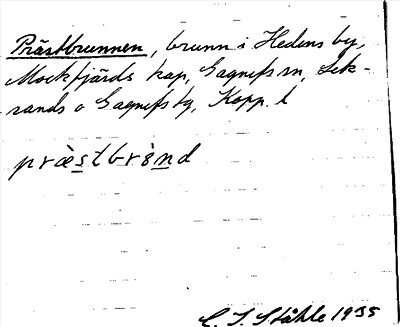 Prästbrunnen, brunn i Hedens by,
Mockfjärds kap, Gagnefs sn, Lek-
sands o Gagnefs tg, Kopp. l
præ̀stbrònd
C. I. Ståhle 1935